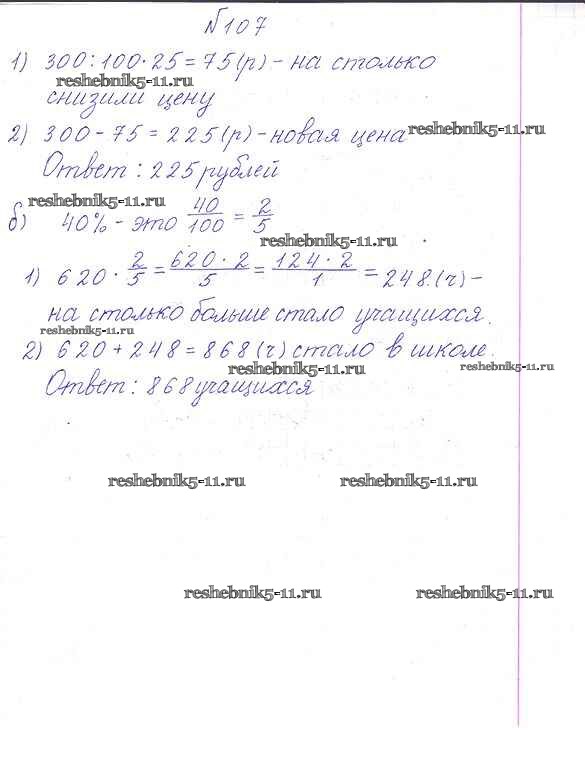 №107
1) 300 : 100 · 25 = 75 (р) – на столько
reshebnik5-11.ru
снизили цену
2) 300 – 75 = 225 (р) – новая цена reshebnik5-11.ru
Ответ : 225 рублей
reshebnik5-11.ru
б) 40% – это 40/100 = 2/5
reshebnik5-11.ru
1) 620 · 2/5 = 620 · 2/5 = 124 · 2/1 = 248 (ч) –
на столько больше стало учащихся.
reshebnik5-11.ru
2) 620 + 248 = 868 (ч) стало в школе.
reshebnik5-11.ru reshebnik5-11.ru
Ответ : 868 учащихся
reshebnik5-11.ru reshebnik5-11.ru
reshebnik5-11.ru reshebnik5-11.ru